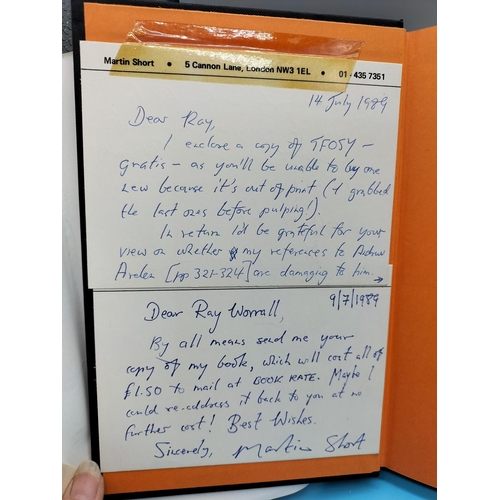 Martin Short • 5 Cannon Lane, London NW3 1EL • 01-435 7351
14 July 1989
Dear Ray,
I enclose a copy of TFOSY –
gratis – as you'll be unable to buy one
new because it's out of print (I grabbed
the last ones before pulping!).
In return I'd be grateful for your
view on whether my references to Andrew
Arden [pp 321-324] are damaging to him. →
9/7/1989
Dear Ray Worrall,
By all means send me your
copy of my book, which will cost all of
£1.50 to mail at BOOK RATE. Maybe I
could re-address it back to you at no
further cost! Best Wishes.
Sincerely, Martin Short